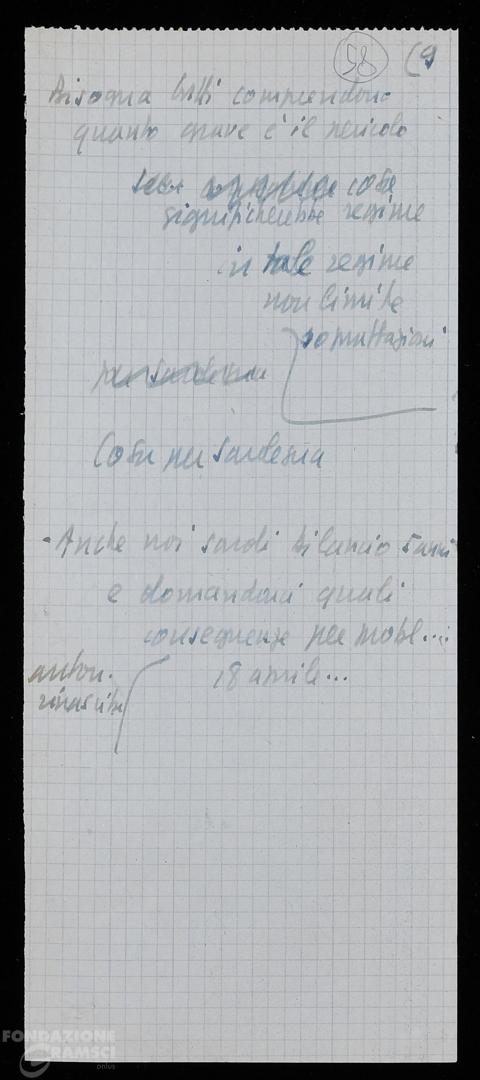 58 (9
Bisogna tutti comprendano
quanto grave è il pericolo
cosa
significherebbe regime
in tale regime
non limite
sopraffazioni
per Sardegna
Cosa per Sardegna
- Anche noi sardi bilancio 5 anni
e domandarci quali
conseguenze per probl...
auton. 18 aprile...
rinascita
FONDAZIONE
GRAMSCI
onlus